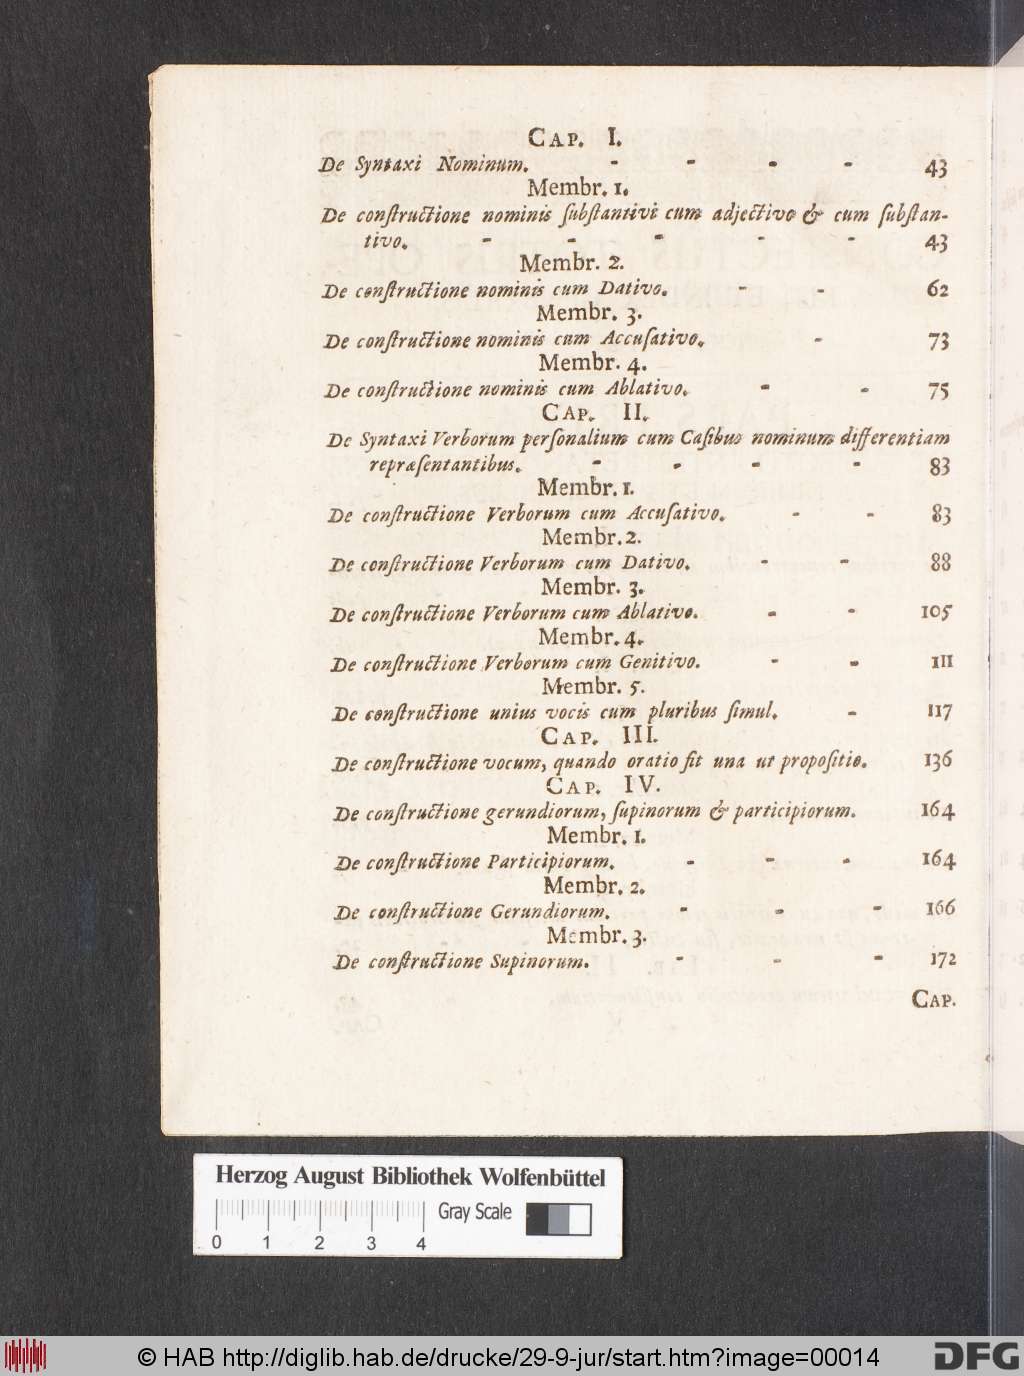 CAP. I.
De Syntaxi Nominum. - - - - 43
Membr. 1.
De conſtructione nominis ſubſtantivi cum adjectivo & cum ſubſtan-
tivo. - - - - - 43
Membr. 2.
De conſtructione nominis cum Dativo. - - 62
Membr. 3.
De conſtructione nominis cum Accuſativo. - 73
Membr. 4.
De conſtructione nominis cum Ablativo. - - 75
CAP. II.
De Syntaxi Verborum perſonalium cum Caſibus nominum differentiam
repræſentantibus. - - - - 83
Membr. 1.
De conſtructione Verborum cum Accuſativo. - - 83
Membr. 2.
De conſtructione Verborum cum Dativo. - - 88
Membr. 3.
De conſtructione Verborum cum Ablativo. - - 105
Membr. 4.
De conſtructione Verborum cum Genitivo. - - 111
Membr. 5.
De conſtructione unius vocis cum pluribus ſimul. - 117
CAP. III.
De conſtructione vocum, quando oratio ſit una ut propoſitio. 136
CAP. IV.
De conſtructione gerundiorum, ſupinorum & participiorum. 164
Membr. 1.
De conſtructione Participiorum. - - - 164
Membr. 2.
De conſtructione Gerundiorum. - - - 166
Membr. 3.
De conſtructione Supinorum. - - - 172
CAP.
Herzog August Bibliothek Wolfenbüttel
Gray Scale
0 1 2 3 4
© HAB http://diglib.hab.de/drucke/29-9-jur/start.htm?image=00014
DFG